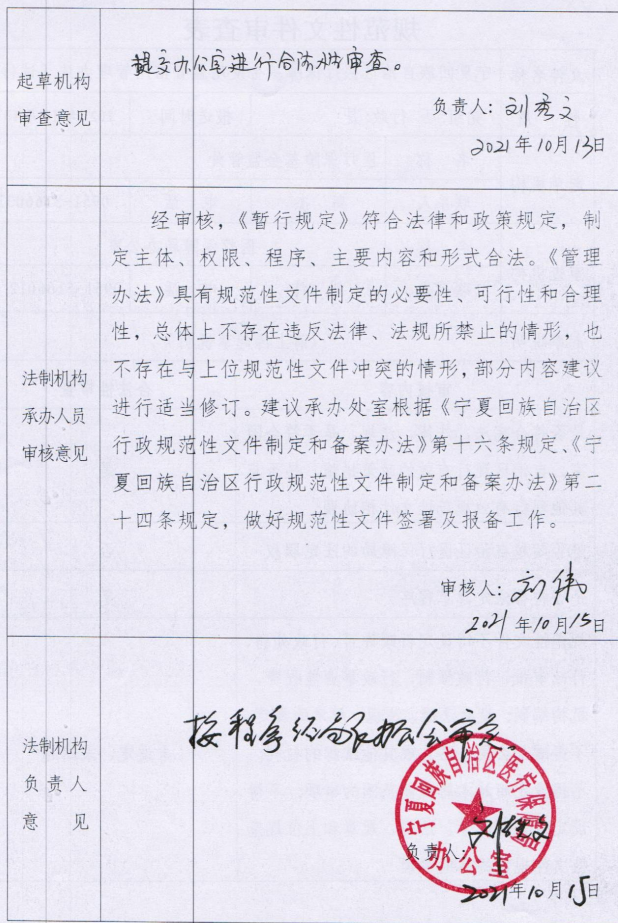 起草机构
审查意见
提交办公室进行合法性审查。
负责人：刘秀文
2021年10月13日
法制机构
承办人员
审核意见
经审核，《暂行规定》符合法律和政策规定，制
定主体、权限、程序、主要内容和形式合法。《管理
办法》具有规范性文件制定的必要性、可行性和合理
性，总体上不存在违反法律、法规所禁止的情形，也
不存在与上位规范性文件冲突的情形，部分内容建议
进行适当修订。建议承办处室根据《宁夏回族自治区
行政规范性文件制定和备案办法》第十六条规定、《宁
夏回族自治区行政规范性文件制定和备案办法》第二
十四条规定，做好规范性文件签署及报备工作。
审核人：刘伟
2021年10月15日
法制机构
负责人
意见
按程序经局长办公会审定。
宁夏回族自治区医疗保障局
办公室
负责人：
2021年10月15日